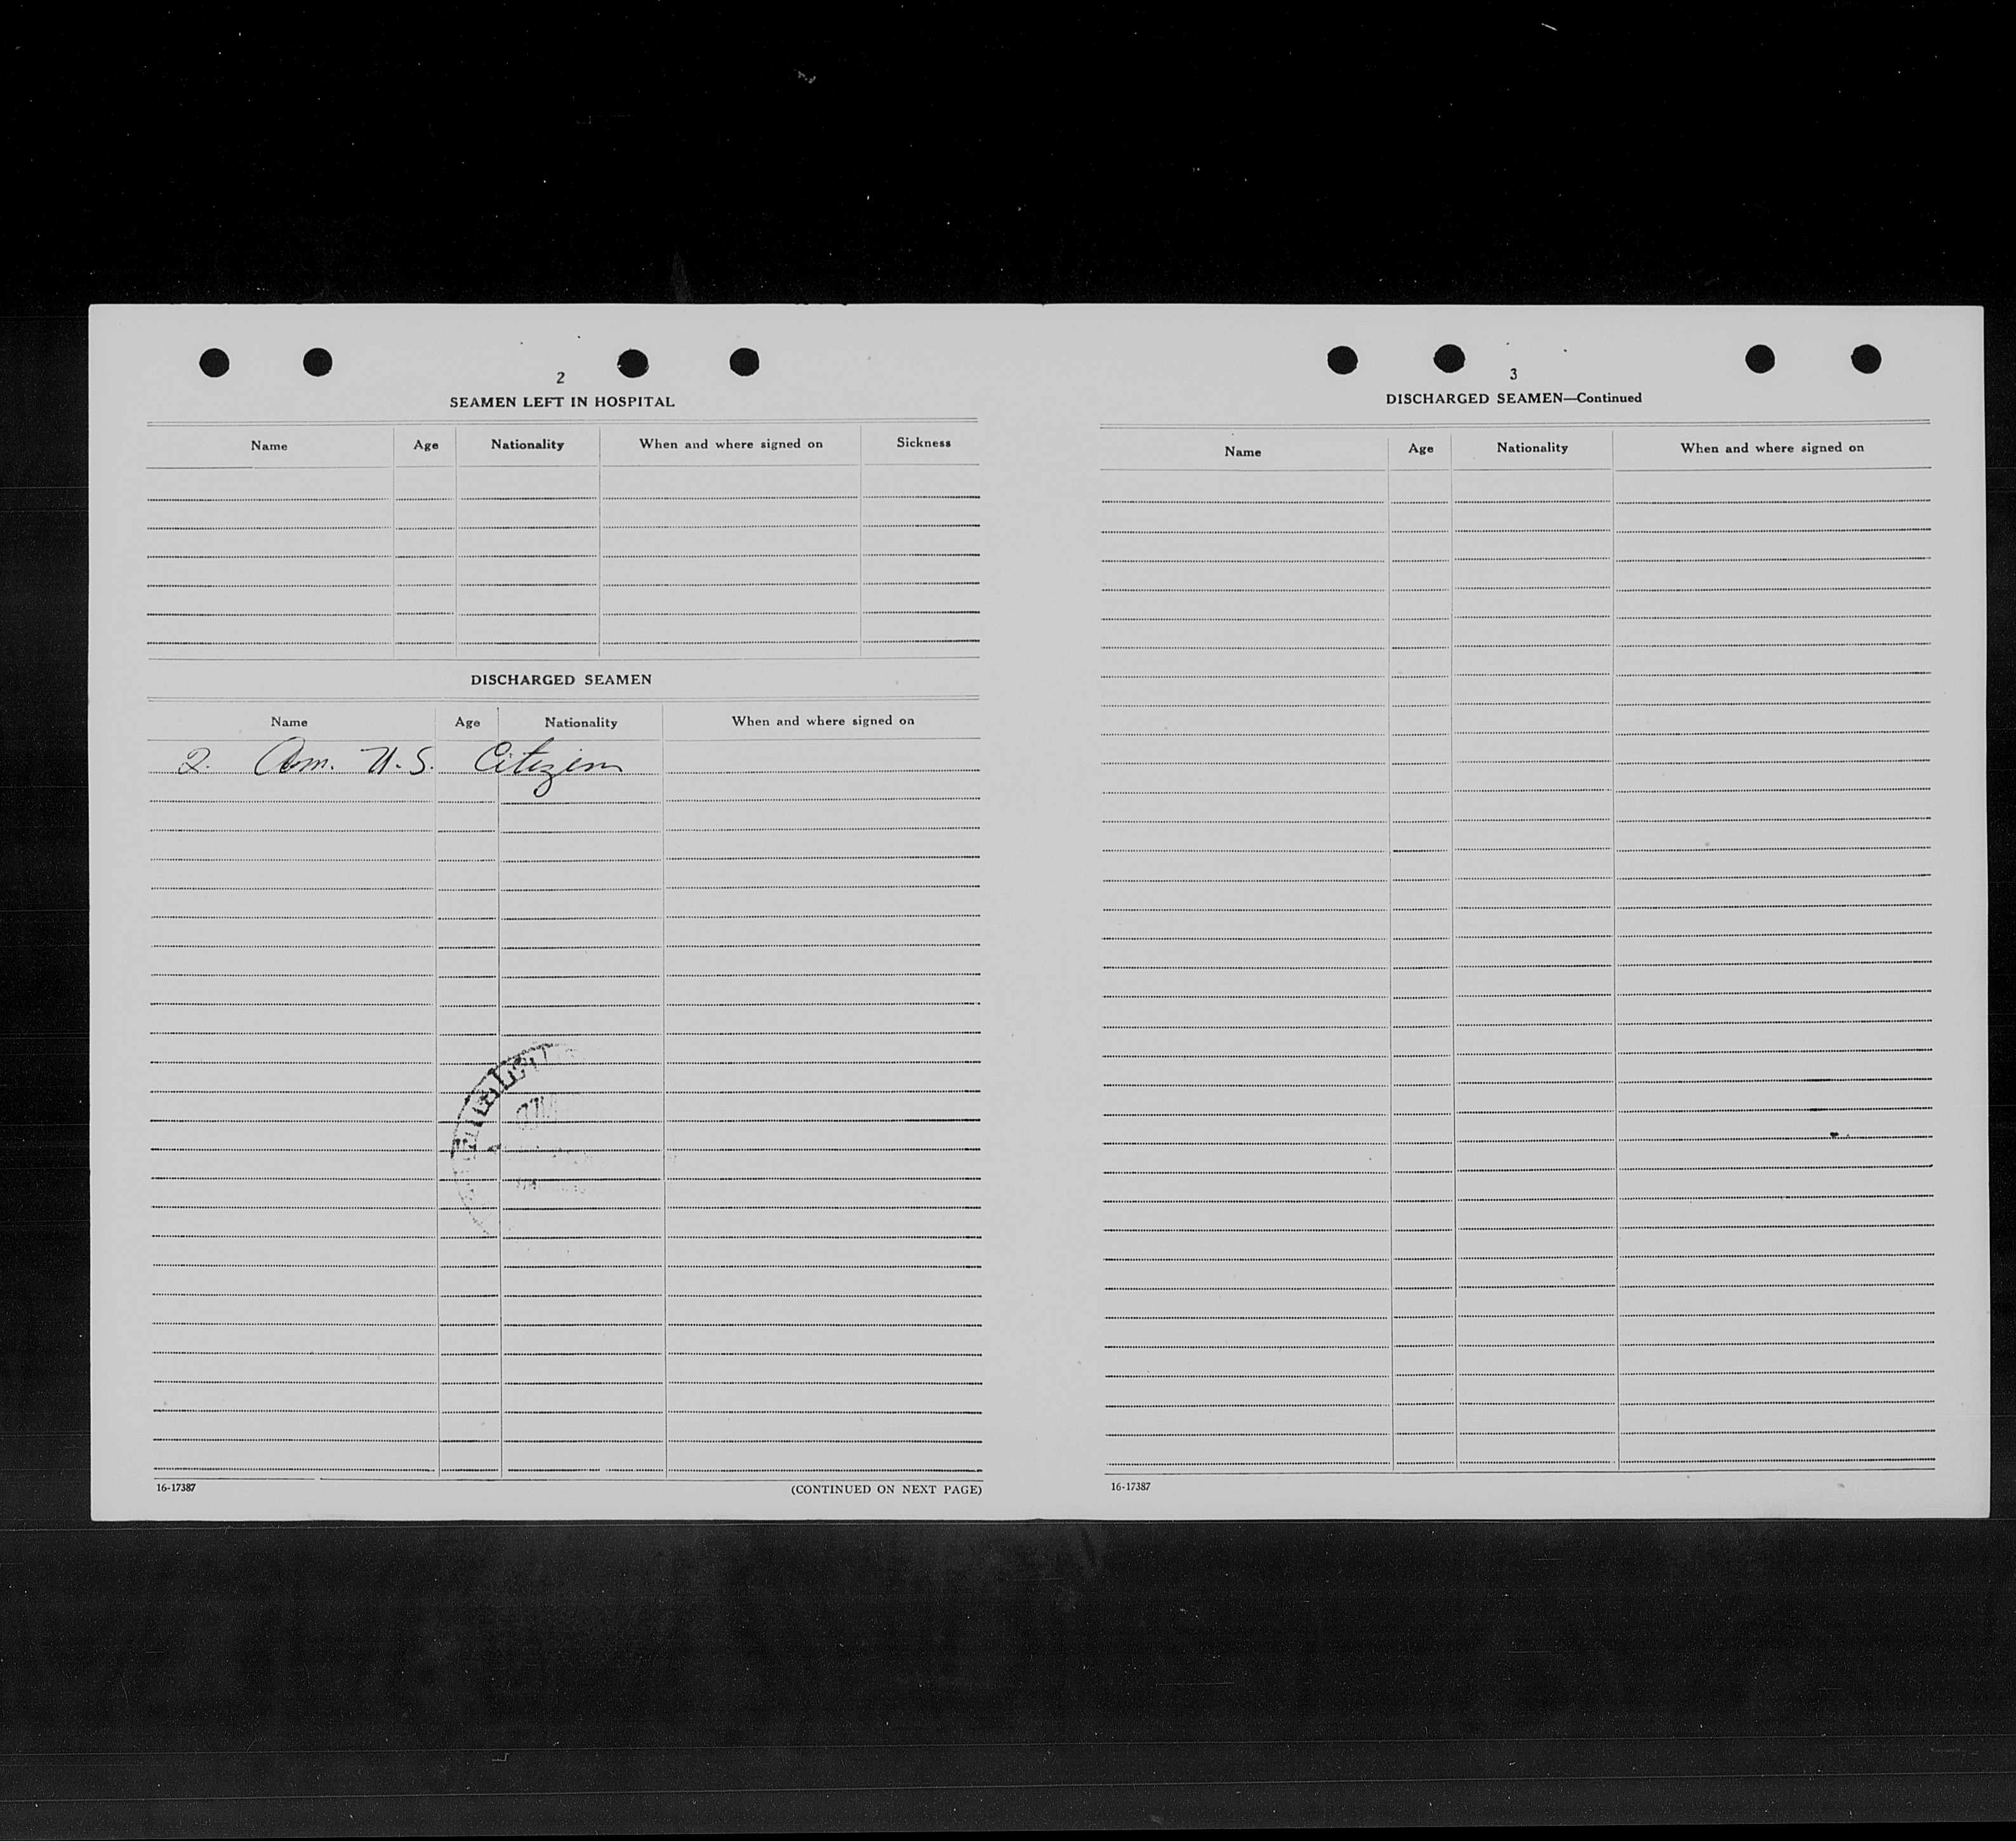 2
SEAMEN LEFT IN HOSPITAL
Name Age Nationality When and where signed on Sickness
DISCHARGED SEAMEN
Name Age Nationality When and where signed on
2. Am. U.S. Citizens
16-17387 (CONTINUED ON NEXT PAGE)
3
DISCHARGED SEAMEN—Continued
Name Age Nationality When and where signed on
16-17387